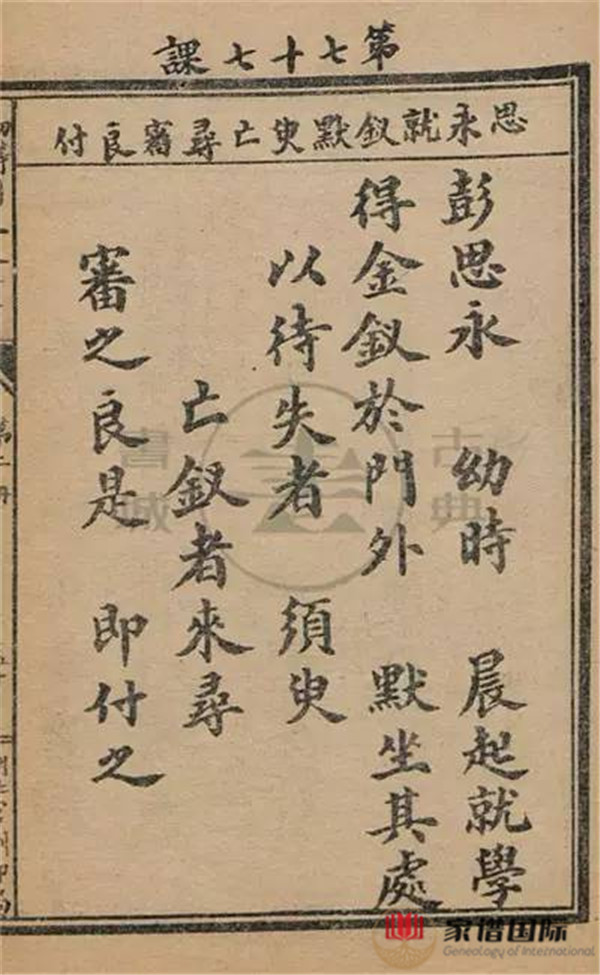 第七十七課
思永就釵默臾亡尋審良付
彭思永 幼時 晨起就學
得金釵於門外 默坐其處
以待失者 須臾
亡釵者來尋
審之良是 即付之
第二冊
古典書城
家谱国际
Genealogy of International